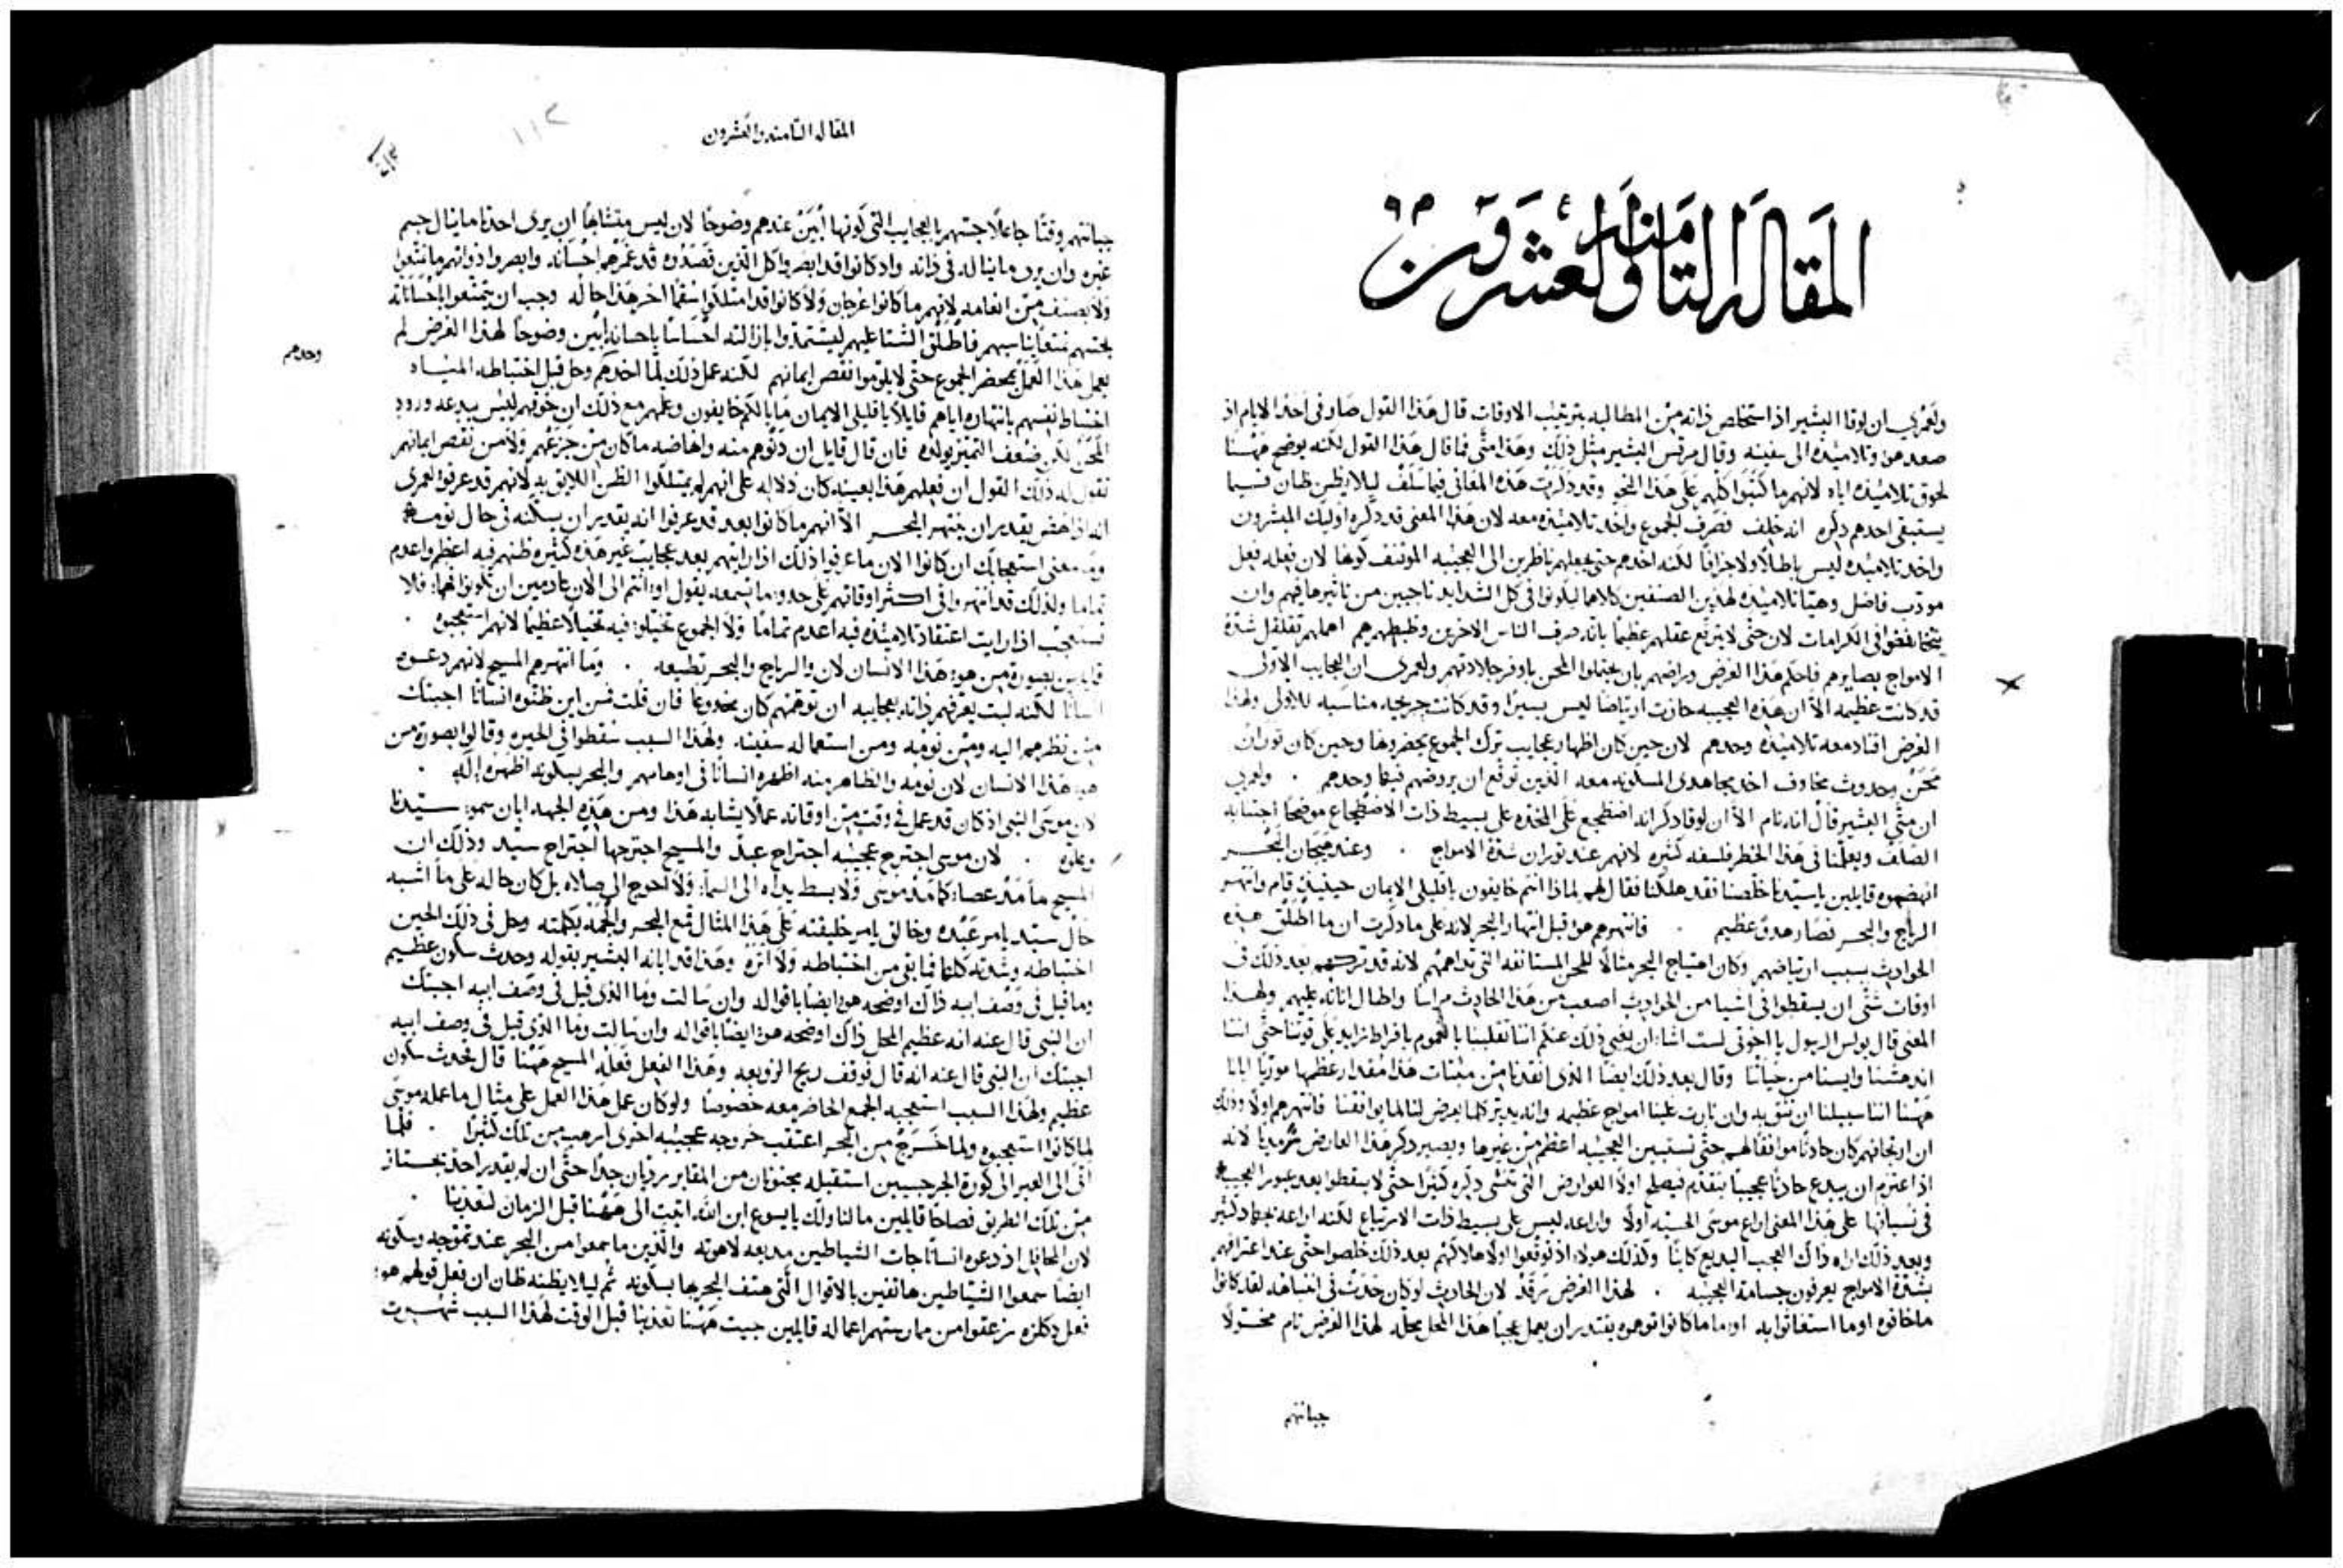 المقاله الثامنه والعشرون
ولعمري ان لوقا البشير اذ استخلص ذاته من المطالبه بترتيب الاوقات قال هذا القول صار في احد الايام اذ
صعد هو وتلاميذه الى سفينه وقال مرقس البشير مثل ذلك وهذا متى فما قال هذا القول لكنه يوضح ههنا
لحوق تلاميذه اياه لانهم ما كتبوا كلهم على هذا النحو وقد ذكرت هذه المعاني فيما سلف ليلا يظن ظان فيما
يستبقى احدهم ذكره انه خلف فصرف الجموع واخذ تلاميذه معه لان هذا المعنى قد ذكره اوليك المبشرون
واخذ تلاميذه ليس باطلا ولا جزافا لكنه اخذهم حتى يجعلهم ناظرين الى العجيبه الموتنف كونها لان فعله فعل
مودب فاضل وهيا تلاميذه لهذين الصنفين كلاهما ليكونوا في كل الشدايد ناجيين من تاثيرها فيهم وان
يتخافضوا في الكرامات لان حتى لا يترفع عقلهم عظيما بانه صرف الناس الاخرين وضبطهم هم اهملهم تقلقل شدة
الامواج بصايرهم فاحكم هذا الغرض وراضهم بان يحتملوا المحن باوفر جلادتهم ولعمري ان العجايب الاولى
قد كانت عظيمه الا ان هذه العجيبه حازت ارتياضا ليس يسيرا وقد كانت جريحه مناسبه للاولى ولهذا
الغرض اقتاد معه تلاميذه وحدهم لان حين كان اظهار عجايب ترك الجموع يحضرونها وحين كان ثوران
محن وحدوث مخاوف اخذ مجاهدي المسكونه معه الذين توقع ان يروضهم فيها وحدهم . ولعمري
ان متى البشير قال انه نام الا ان لوقا ذكر انه اضطجع على المخده على بسيط ذات الاضطجاع موضحا اجتنابه
الصلف ويعلمنا في هذا الخطر فلسفه كثيره لانهم عند ثوران شدة الامواج . وعند هيجان البحر
انهضوه قايلين يا سيدنا خلصنا فقد هلكنا فقال لهم لماذا انتم خايفون يا قليلي الايمان حينيذ قام وانتهر
الرياح والبحر فصار هدو عظيم . فانتهرهم هو قبل انتهار البحر لانه على ما ذكرت ان ما اطلق هذه
الحوادث بسبب ارتياضهم وكان اهتياج البحر مثالا للمحن المستانفه التي تداهمهم لانه قد تركهم بعد ذلك في
اوقات شتى ان يسقطوا في اشيا من الحوادث اصعب من هذا الحادث مراسا واطال اناته عليهم ولهذا
المعنى قال بولس الرسول يا اخوتي لست اشاء ان يغبى ذلك عنكم اننا تقلبنا بالغموم بافراط زايد على قوتنا حتى اننا
اندهشنا وايسنا من حياتنا وقال بعد ذلك ايضا الذي انقذنا من ميتات هذا مقدار عظمها موريا ايانا
ههنا اننا سبيلنا ان نثق به وان ثارت علينا امواج عظيمه وانه يدبر كلما يعرض لنا لما يوافقنا فانتهرهم اولا وذلك
ان ارتجافهم كان حادثا موافقا لهم حتى تستبين العجيبه اعظم من غيرها ويصير ذكر هذا العارض سرمديا لانه
اذا اعتزم ان يبدع حادثا عجيبا يتقدم فيصلح اولا العوارض التي تنشي ذكره كثيرا حتى لا يسقطوا بعد عبور العجيبه
في نسيانها على هذا المعنى اراع موسى الحيه اولا واراعه ليس على بسيط ذات الارتياع لكنه اراعه بجهاد كثير
وبعد ذلك اراه ذاك العجب البديع كاينا وكذلك هولاء اذ توقعوا اولا هلاكهم بعد ذلك خلصوا حتى عند اعترافهم
بشدة الامواج يعرفون جسامة العجيبه . لهذا الغرض رقد لان الحادث لو كان حدث في انتباهه لقد كانوا
ما خافوه او ما استغاثوا به او ما كانوا توهموه يقتدر ان يعمل عجبا هذا المحل محله لهذا الغرض نام مخولا
جبانتهم
المقاله الثامنه والعشرون
١١٢
جبانتهم وقتا جاعلا حسهم بالعجايب التي كونها ابين عندهم وضوحا لان ليس متشابها ان يرى احدنا ما ينال جسم
غيره وان يرى ما يناله في ذاته واذ كانوا قد ابصروا كل الذين قصدوه قد غمرهم احسانه وابصروا ذواتهم ما تمتعوا
ولا بصنف من انعامه لانهم ما كانوا عرجان ولا كانوا قد امتلكوا سقما اخر هذا حاله وجب ان يتمتعوا باحساناته
يعمل هذا العمل بمحضر الجموع حتى لا يلوموا نقص ايمانهم لكنه عمل ذلك لما اخذهم وحل قبل اختباطه المياه
وحدهم
اختباط نفسهم بانتهاره اياهم قايلا يا قليلي الايمان ما بالكم خايفون وعلمهم مع ذلك ان خوفهم ليس يبدعه ورود
المحن لكن ضعف التمييز يولده فان قال قايل ان دنوهم منه وانهاضه ما كان من جزعهم ولا من نقص ايمانهم
نقول له ذلك القول ان فعلهم هذا بعينه كان دلاله على انهم لم يمتلكوا الظن اللايق به لانهم قد عرفوا لعمري
انه اذا نهض يقدر ان ينتهر البحر الا انهم ما كانوا بعد قد عرفوا انه يقدر ان يسكنه في حال نومه
وما معنى استعجابك ان كانوا الان ما عرفوا ذلك اذا رايتهم بعد عجايب غير هذه كثيره ظنهم فيه اعظم واعدم
تماما ولذلك قد انتهروا في اكثر اوقاتهم على حدو ما تسمعه يقول اوانتم الى الان عادمين ان تكونوا فهما، فلا
تستعجب اذا رايت اعتقاد تلاميذه فيه اعدم تماما ولا الجموع تخيلوا فيه تخيلا عظيما لانهم استعجبوه .
قايلين بصورة من هو هذا الانسان لان والرياح والبحر تطيعه . وما انتهرهم المسيح لانهم دعوه
انسانا لكنه لبث يعرفهم ذاته بعجايبه ان توهمهم كان مخدوعا فان قلت فمن اين ظنوه انسانا اجبتك
من نظرهم اليه ومن نومه ومن استعماله سفينه ولهذا السبب سقطوا في الحيره وقالوا بصورة من
هو هذا الانسان لان نومه والظاهر منه اظهره انسانا في اوهامهم والبحر بسكونه اظهره الها .
لان موسى النبي اذ كان قد عمل في وقت من اوقاته عملا يشابه هذا ومن هذه الجهه ابان سمو سيدنا
وعلوه . لان موسى اجترح عجيبه اجتراح عبد والمسيح اجترحها اجتراح سيد وذلك ان
المسيح ما مد عصاء كما مد موسى ولا بسط يداه الى السماء ولا احوج الى صلاه بل كان حاله على ما اشبه
حال سيد يامر عبده وخالق يامر خليقته على هذا المثال قمع البحر والجمه بكلمته وحل في ذلك الحين
اختباطه وشدته كلها فما بقي من اختباطه ولا اثره وهذا قد ابانه البشير بقوله وحدث سكون عظيم
وما قيل في وصف ابيه ذاك اوضحه هو ايضا باقواله وان سالت وما الذي قيل في وصف ابيه اجبتك
ان النبي قال عنه انه عظيم المحل ذاك اوضحه هو ايضا باقواله وان سالت وما الذي قيل في وصف ابيه
اجبتك ان النبي قال عنه انه قال فوقف ريح الزوبعه وهذا الفعل فعله المسيح ههنا قال فحدث سكون
عظيم ولهذا السبب استعجبه الجمع الحاضر معه خصوصا ولو كان عمل هذا العمل على مثال ما عمله موسى
لما كانوا استعجبوه ولما خرج من البحر اعتقب خروجه عجيبه اخرى ارهب من تلك كثيرا . فلما
اتى الى العبر الى كورة الجرجسيين استقبله مجنونان من المقابر رديان جدا حتى ان لم يقدر احد يجتاز
من تلك الطريق فصاحا قايلين ما لنا ولك يا يسوع ابن الله اتيت الى ههنا قبل الزمان لتعذبنا .
لان المحافل اذ دعوه انسانا جات الشياطين مذيعه لاهوته والذين ما سمعوا من البحر عند تموجه وسكونه
ايضا سمعوا الشياطين هاتفين بالاقوال التي هتف البحر بها بسكونه ثم ليلا يظنه ظان ان فعل قولهم هو
قايلين جيت ههنا تعذبنا قبل الوقت لهذا السبب شهرت